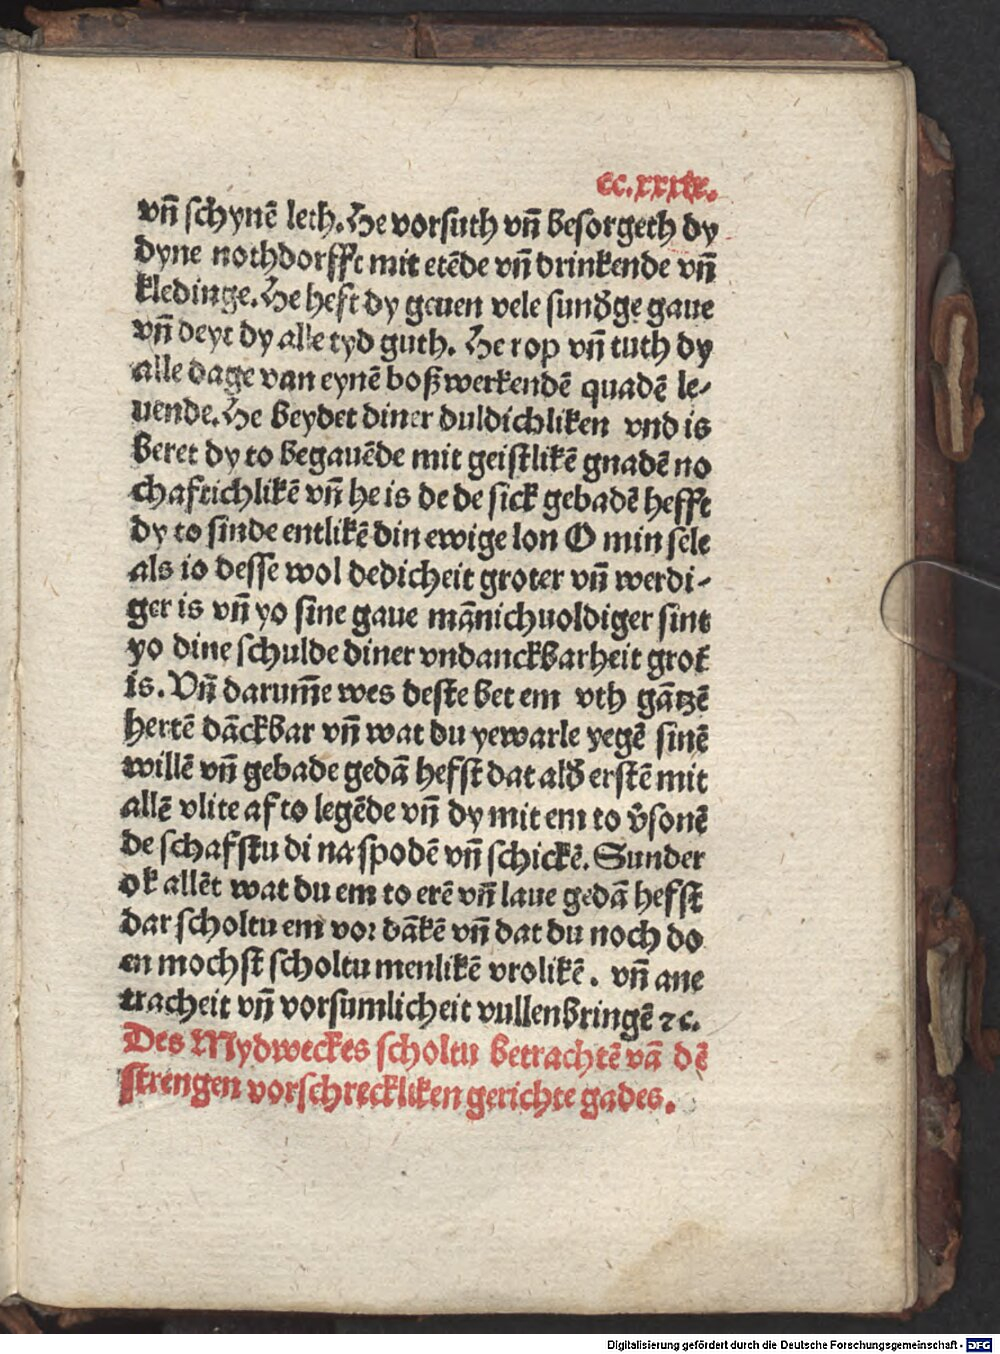 cc.xxxix.
vn̄ schynē leth. He vorsuth vn̄ besorgeth dy
dyne nothdorfft mit etēde vn̄ drinkende vn̄
kledinge. He heft dy geuen vele sunđge gaue
vn̄ deyt dy alle tyd guth. He rop vn̄ tuth dy
alle dage van eynē boß werkendē quadē le-
uende. He beydet diner duldichliken vnd is
beret dy to begauēde mit geistlikē gnadē no
chaftichlikē vn̄ he is de de sick gebadē hefft
dy to sinde entlikē din ewige lon O min sele
als io desse wol dedicheit groter vn̄ werdi-
ger is vn̄ yo sine gaue mānichuoldiger sint
yo dine schulde diner vndanckbarheit grot
is. Vn̄ darum̄e wes deste bet em vth gātzē
hertē dāckbar vn̄ wat du yewarle yegē sinē
willē vn̄ gebade gedā hefst dat alđ erstē mit
allē vlite af to legēde vn̄ dy mit em to v̄sonē
de schafstu di na spodē vn̄ schickē. Sunder
ok allēt wat du em to erē vn̄ laue gedā hefst
dar scholtu em vor dākē vn̄ dat du noch do
en mochst scholtu menlikē vrolikē. vn̄ ane
tracheit vn̄ vorsumlicheit vullenbringē ⁊c.
Des Mydweckes scholtu betrachtē vā dē
strengen vorschreckliken gerichte gades.
Digitalisierung gefördert durch die Deutsche Forschungsgemeinschaft - DFG